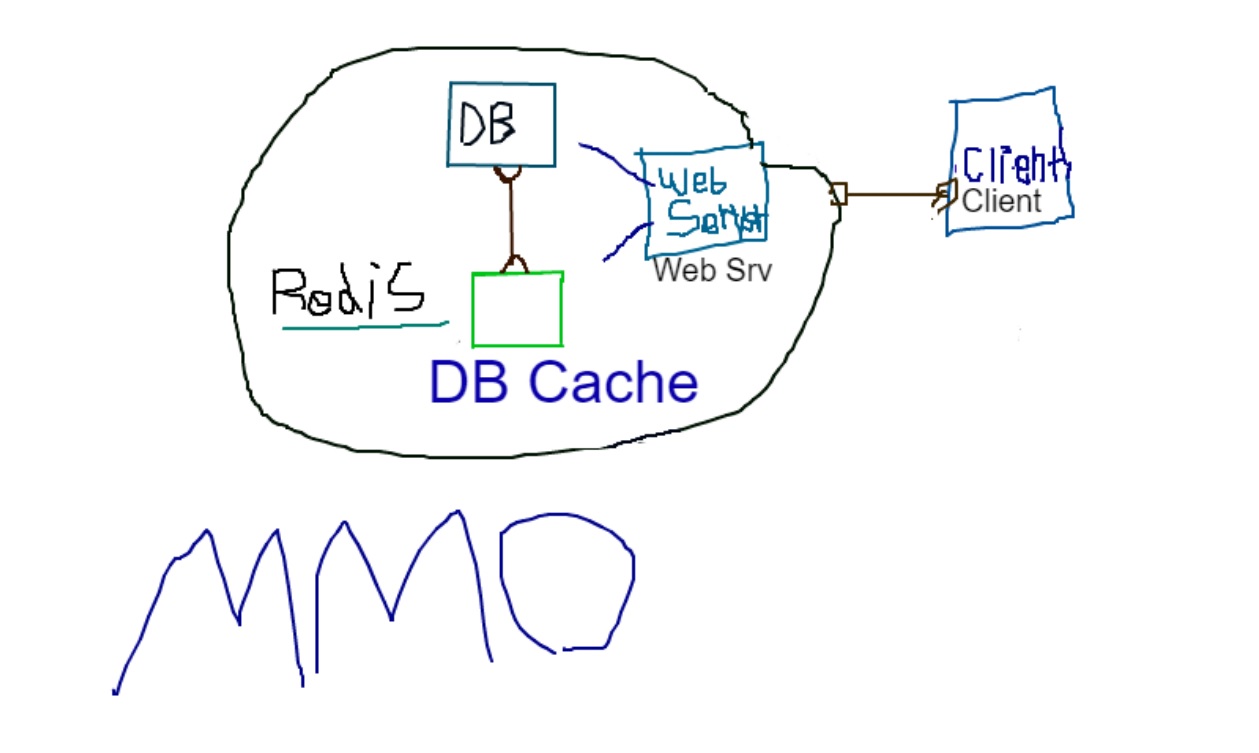 DB
Web
Server
Web Srv
Client
Client
Redis
DB Cache
MMO